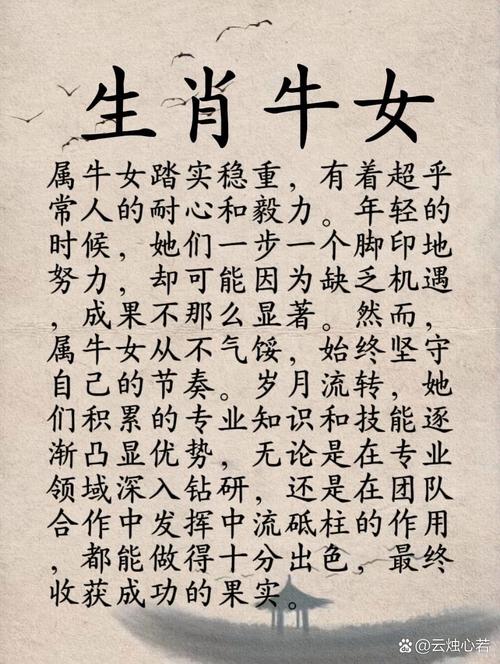 生肖牛女
属牛女踏实稳重，有着超乎
常人的耐心和毅力。年轻的
时候，她们一步一个脚印地
努力，却可能因为缺乏机遇
，成果不那么显著。然而，
属牛女从不气馁，始终坚守
自己的节奏。岁月流转，她
们积累的专业知识和技能逐
渐凸显优势，无论是在专业
领域深入钻研，还是在团队
合作中发挥中流砥柱的作用
，都能做得十分出色，最终
收获成功的果实。
@云烛心若